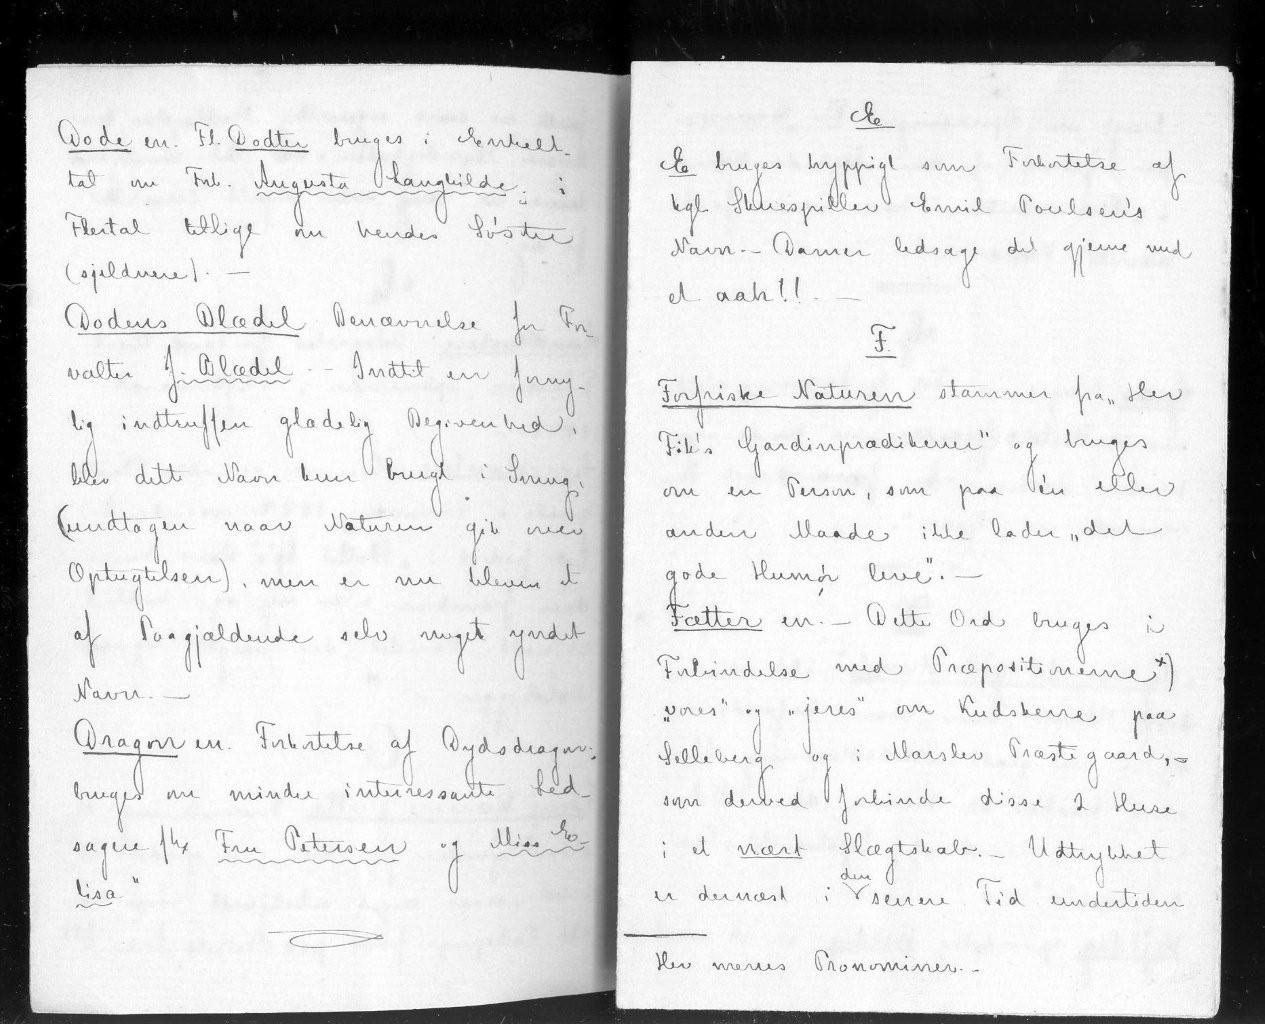 Dode en. Fl. Dodter bruges i Enkelt-
tal om Frk. Augusta Langkilde; i
Flertal tillige om hendes Søstre
(sjeldnere). —
Dodens Blædel Benævnelse for For-
valter J. Blædel. — Indtil en forny-
lig indtruffen glædelig Begivenhed,
blev dette Navn kun brugt i Smug,
(undtagen naar Naturen gik over
Optugtelsen), men er nu bleven et
af Paagjældende selv meget yndet
Navn. —
Dragon en. Forkortelse af Dydsdragon;
bruges om mindre interessante Led-
sagere f.Ex Fru Petersen og Miss E-
lisa"
E
E bruges hyppigt som Forkortelse af
kgl. Skuespiller Emil Poulsen's
Navn. — Damer ledsage det gjerne med
et aah!! —
F.
Forfriske Naturen stammer fra „Her
Fik's Gardinprædikener" og bruges
om en Person, som paa én eller
anden Maade ikke lader „det
gode Humør leve". —
Fætter en. — Dette Ord bruges i
Forbindelse med Præpositionerne x)
„vores" og „jeres" om Kudskene paa
Selleberg og i Marslev Præstegaard, —
som derved forbinde disse 2 Huse
i et nært Slægtskab. — Udtrykket
er dernæst i den senere Tid undertiden
Her menes Pronominer. —